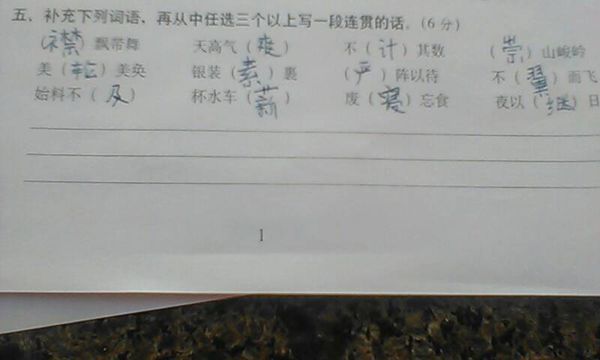 五、补充下列词语、再从中任选三个以上写一段连贯的话。(6分)
(襟)飘带舞 天高气(爽) 不(计)其数 (崇)山峻岭
美(轮)美奂 银装(素)裹 (严)阵以待 不(翼)而飞
始料不(及) 杯水车(薪) 废(寝)忘食 夜以(继)日
1